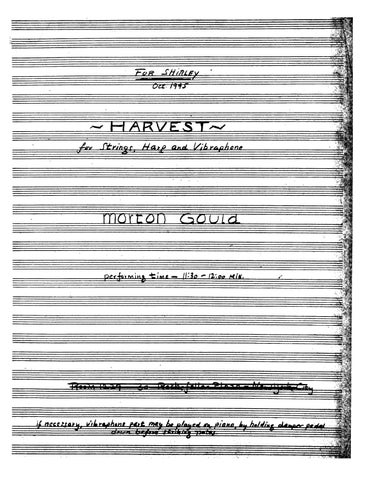 FOR SHIRLEY
Oct 1945
~ HARVEST ~
for Strings, Harp and Vibraphone
Morton Gould
performing time — 11:30 – 12:00 Min.
Room 1239 30 Rockefeller Plaza New York City
if necessary, vibraphone part may be played on piano, by holding damper pedal
down before striking notes